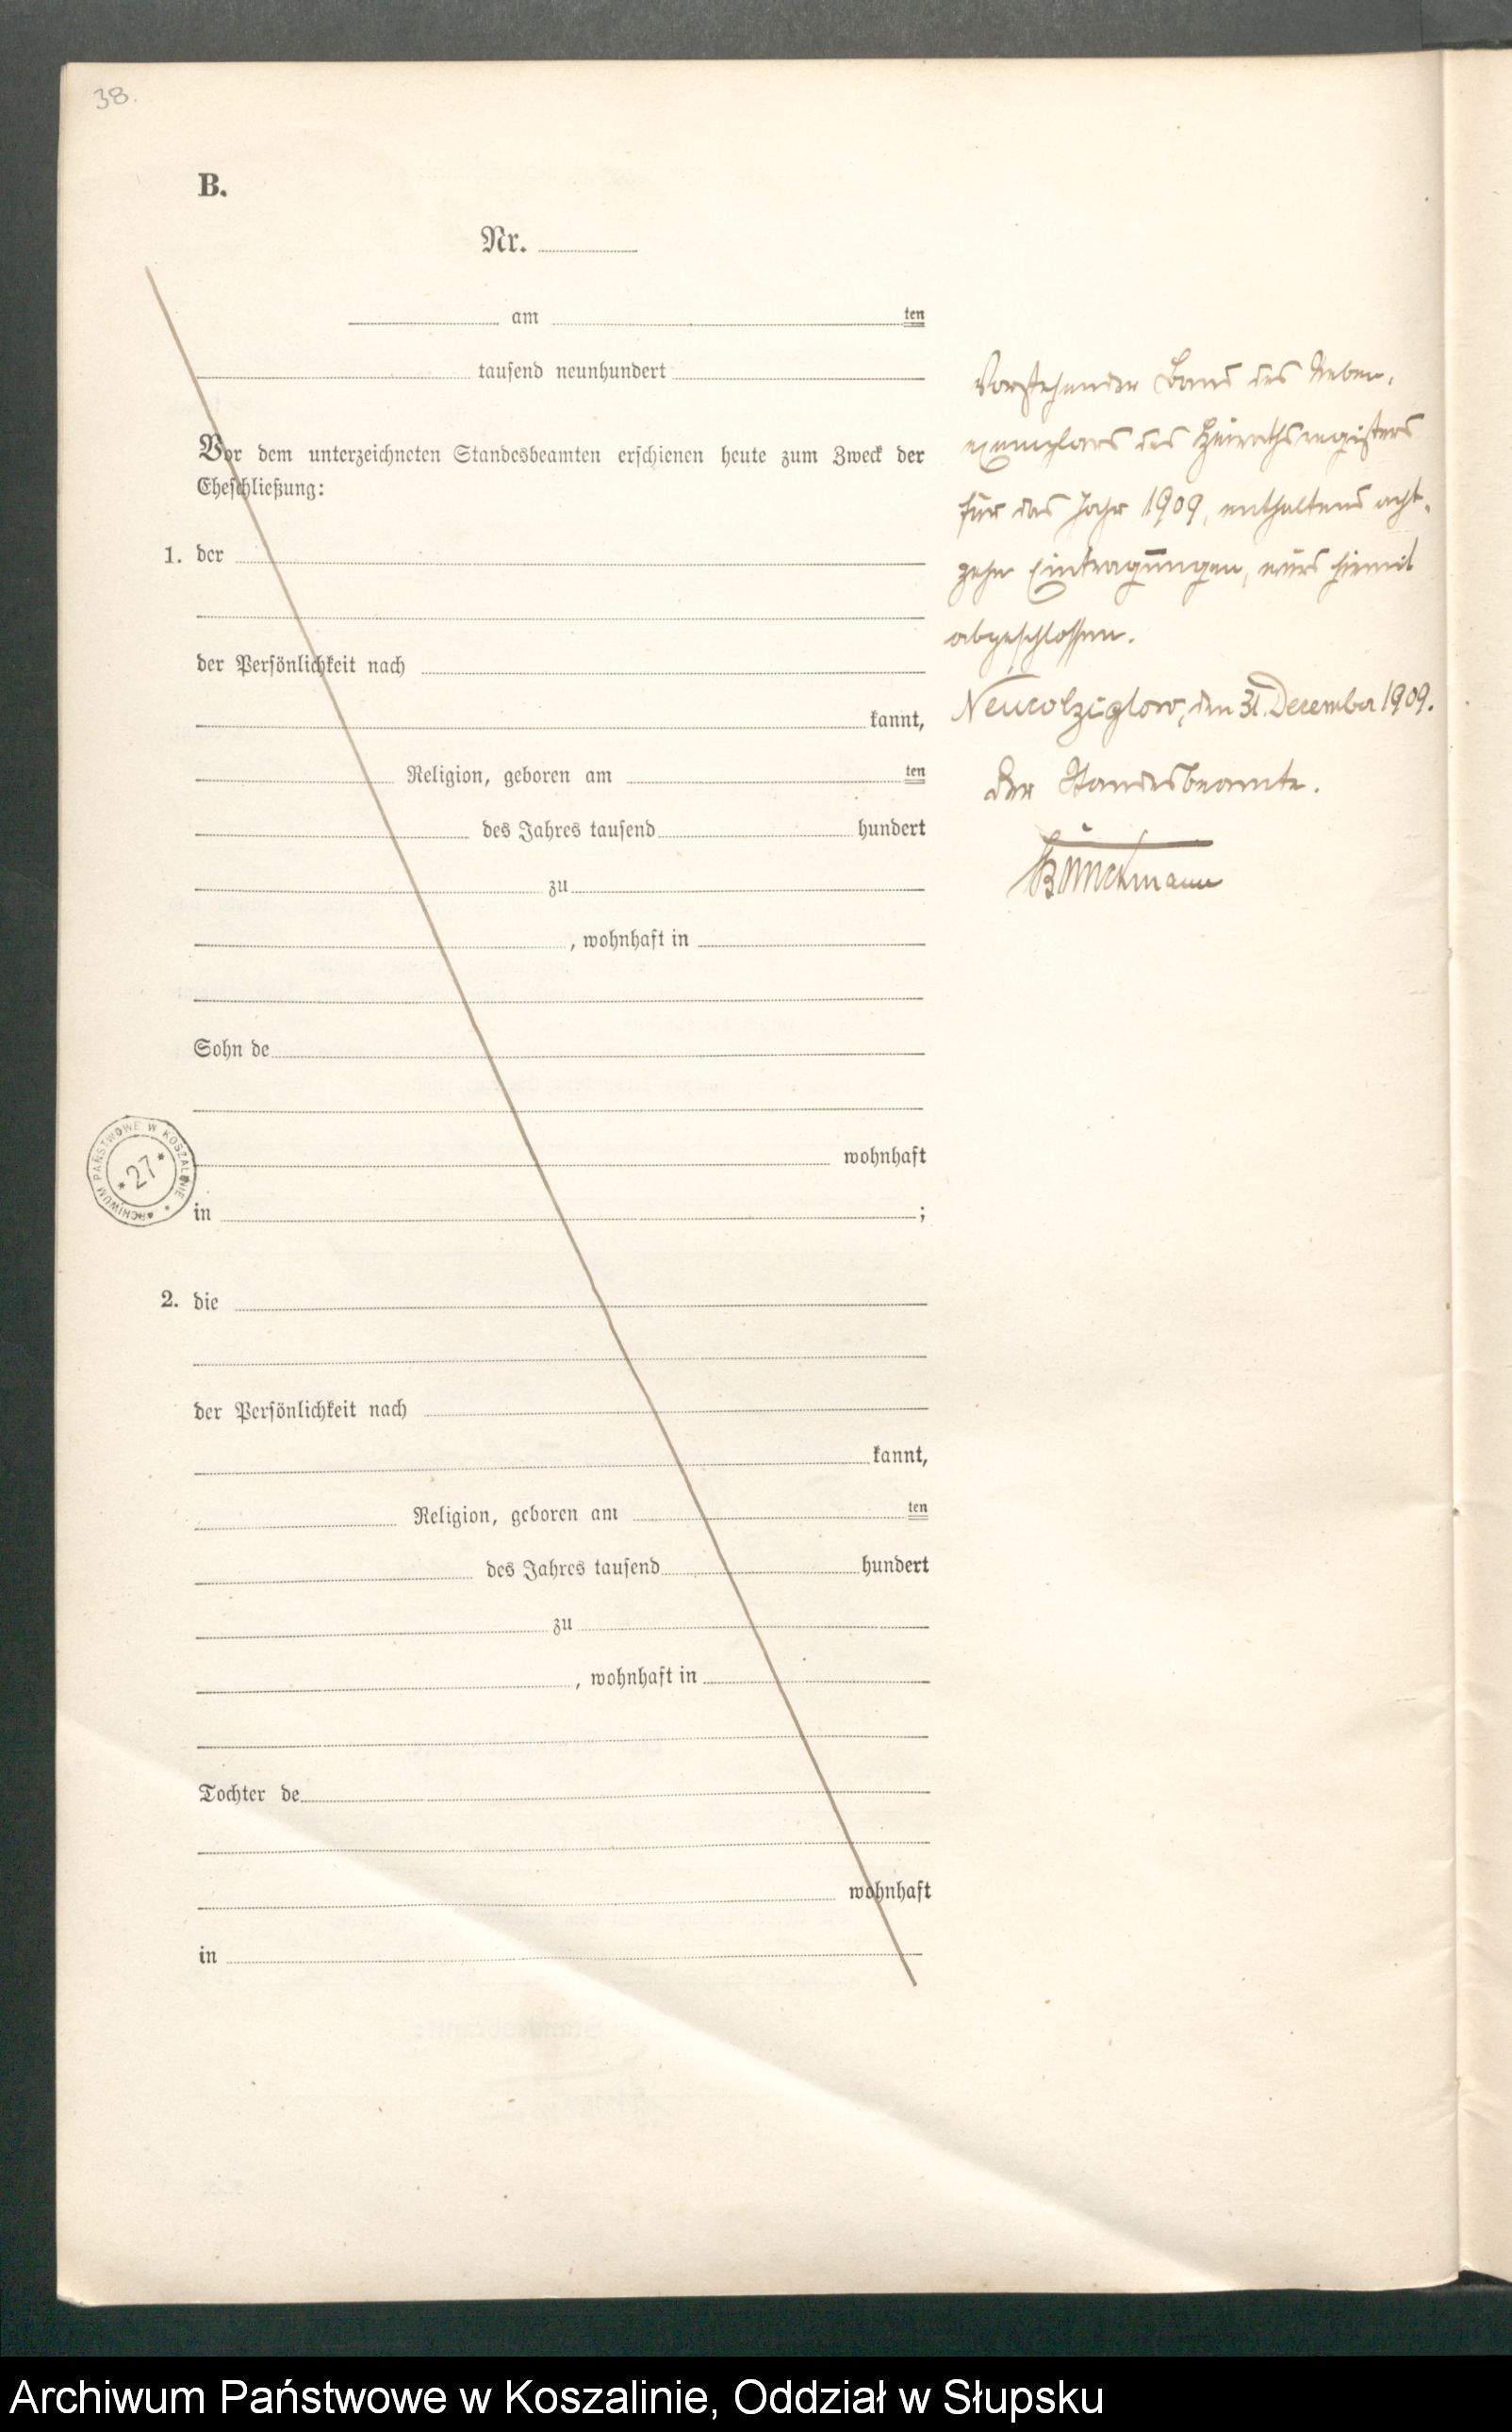 38.
B.
Nr.
am ten
tausend neunhundert
Vor dem unterzeichneten Standesbeamten erschienen heute zum Zweck der
Eheschließung:
1. der
der Persönlichkeit nach
kannt,
Religion, geboren am ten
des Jahres tausend hundert
zu
, wohnhaft in
Sohn de
wohnhaft
in ;
2. die
der Persönlichkeit nach
kannt,
Religion, geboren am ten
des Jahres tausend hundert
zu
, wohnhaft in
Tochter de
wohnhaft
in
Vorstehender Band des Neben-
exemplars des Heirathsregisters
für das Jahr 1909, enthaltend acht-
zehn Eintragungen, wird hiemit
abgeschlossen.
Neucolziglow, den 31. December 1909.
Der Standesbeamte.
ARCHIWUM PAŃSTWOWE W KOSZALINIE
* 27 *
Archiwum Państwowe w Koszalinie, Oddział w Słupsku